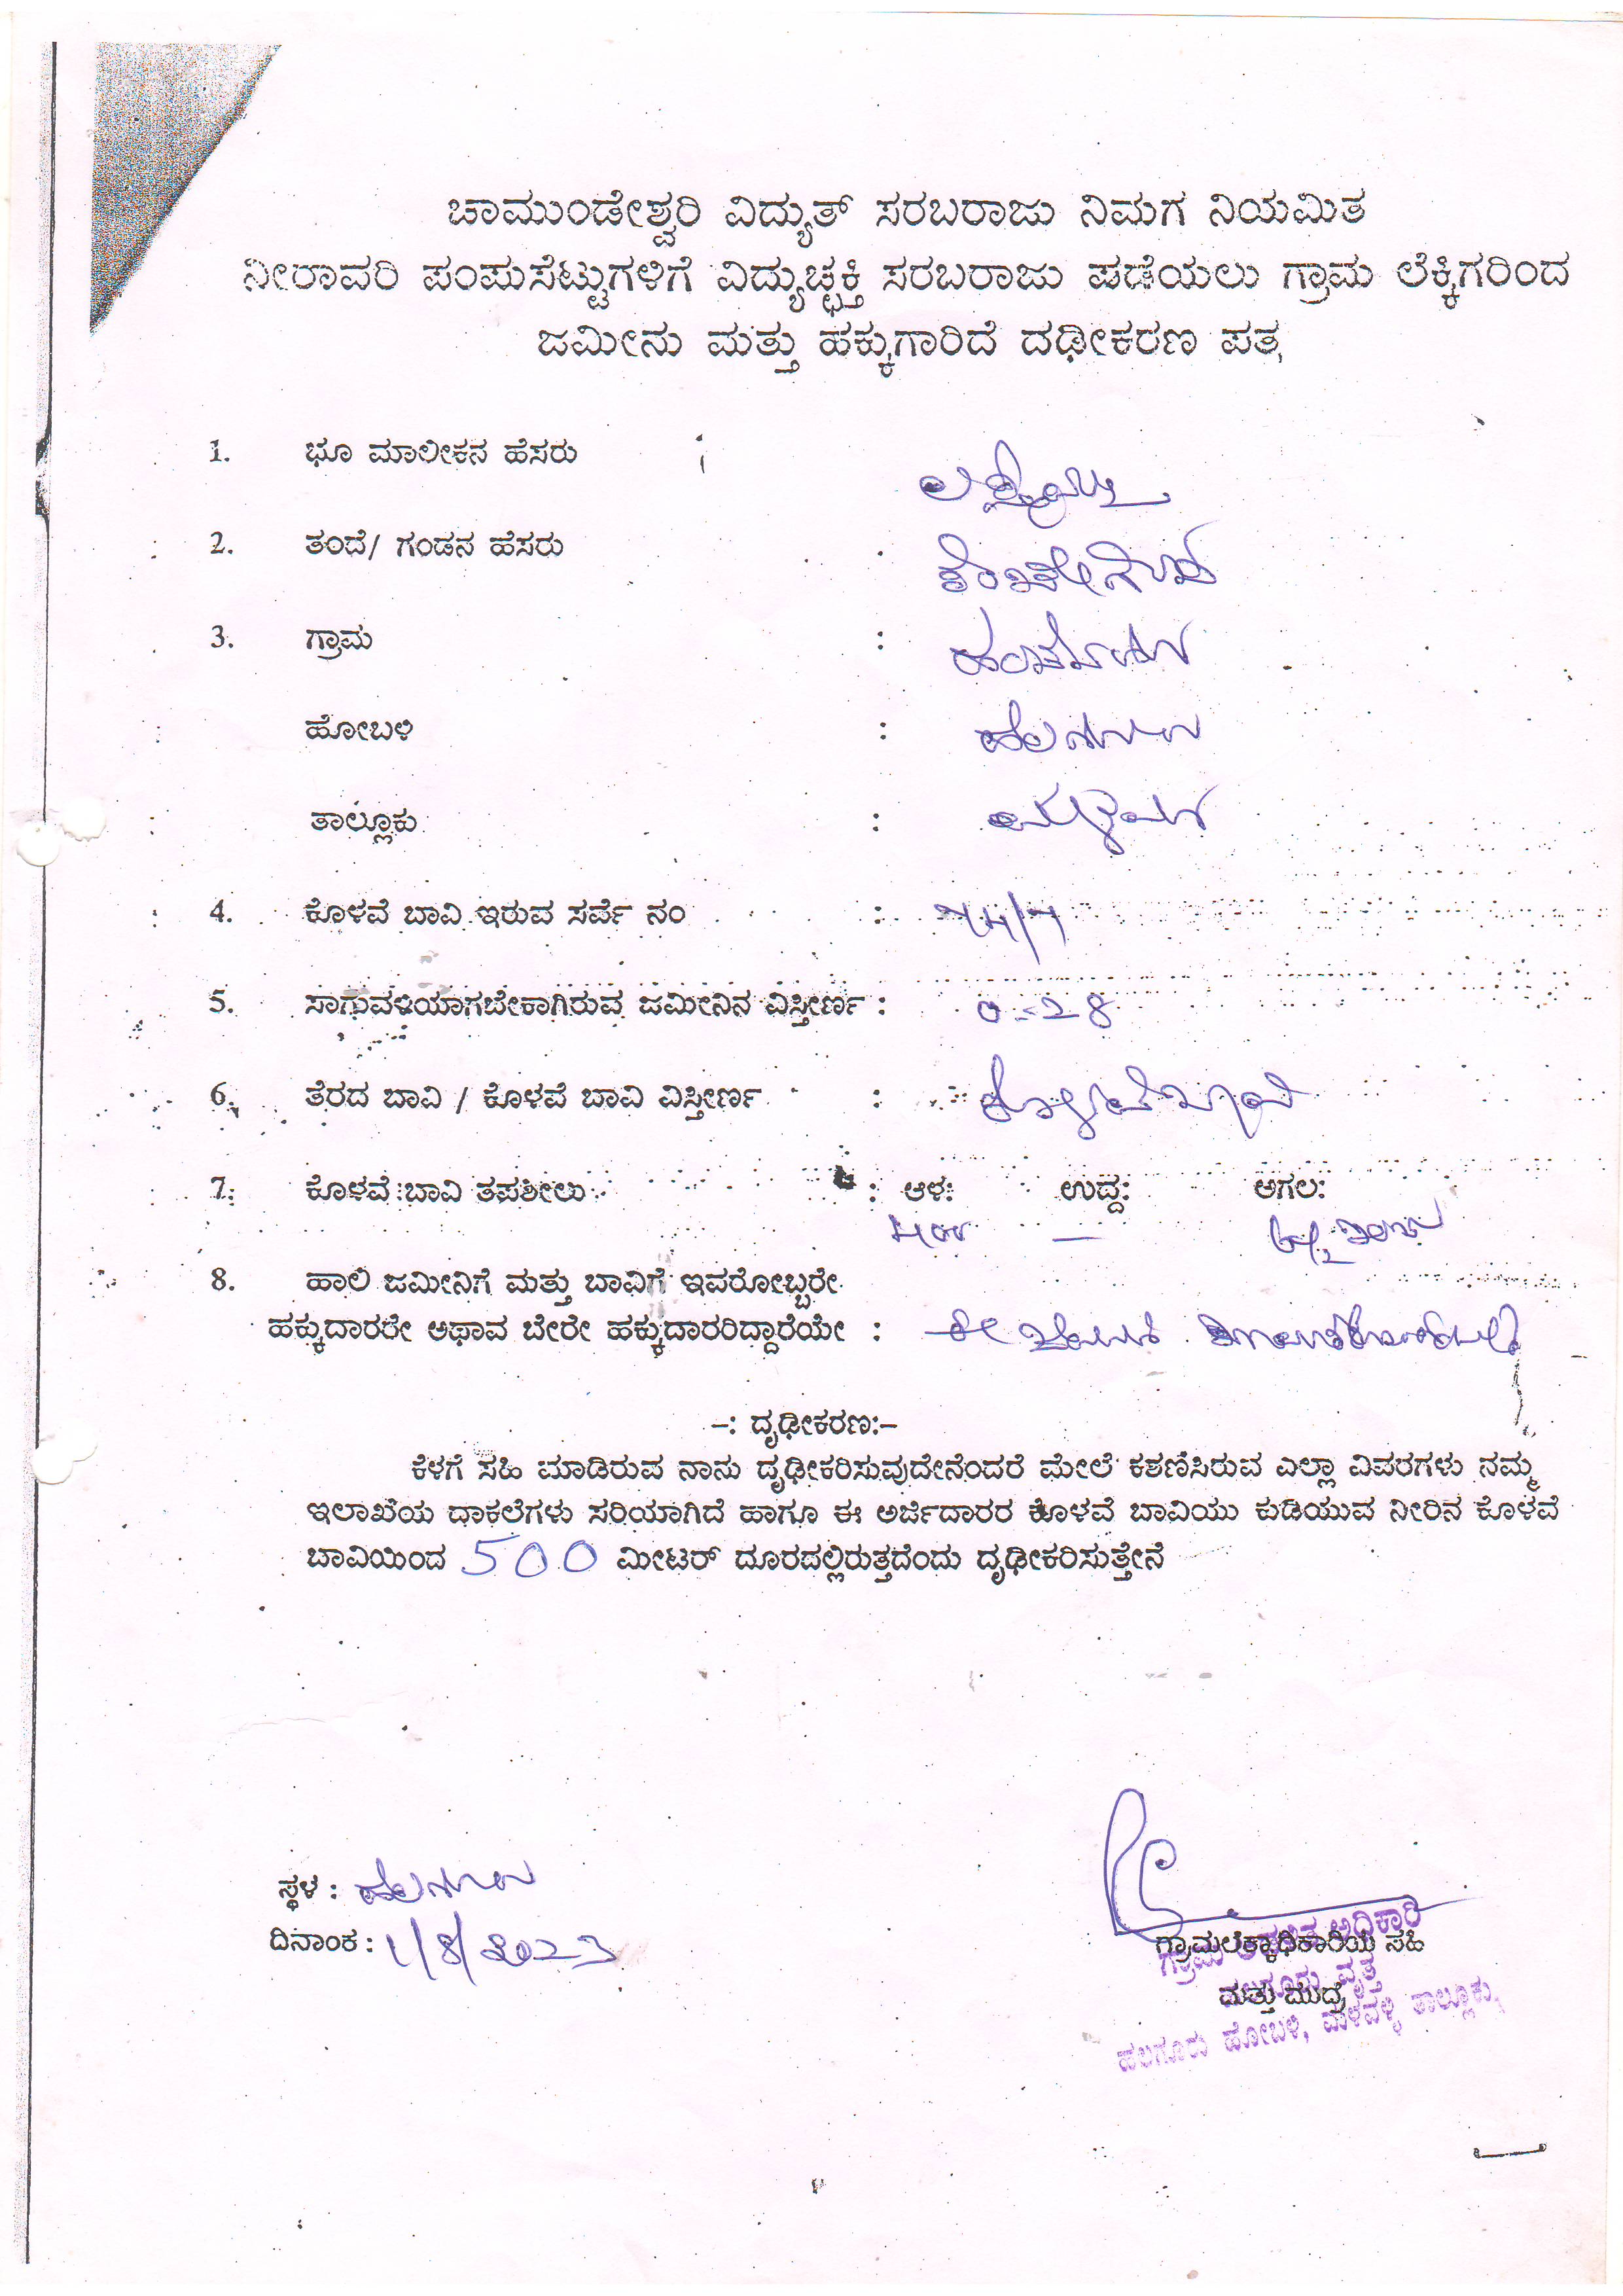 ಚಾಮುಂಡೇಶ್ವರಿ ವಿದ್ಯುತ್ ಸರಬರಾಜು ನಿಮಗ ನಿಯಮಿತ
ನೀರಾವರಿ ಪಂಪುಸೆಟ್ಟುಗಳಿಗೆ ವಿದ್ಯುಚ್ಛಕ್ತಿ ಸರಬರಾಜು ಪಡೆಯಲು ಗ್ರಾಮ ಲೆಕ್ಕಿಗರಿಂದ
ಜಮೀನು ಮತ್ತು ಹಕ್ಕುಗಾರಿದೆ ದಢೀಕರಣ ಪತ್ರ
1. ಭೂ ಮಾಲೀಕನ ಹೆಸರು
2. ತಂದೆ/ ಗಂಡನ ಹೆಸರು : ಕೆಂಚೇಗೌಡ
3. ಗ್ರಾಮ :
ಹೋಬಳಿ : ಹಲಗೂರು
ತಾಲ್ಲೂಕು : ಮಳವಳ್ಳಿ
4. ಕೊಳವೆ ಬಾವಿ ಇರುವ ಸರ್ವೆ ನಂ :
5. ಸಾಗುವಳಿಯಾಗಬೇಕಾಗಿರುವ ಜಮೀನಿನ ವಿಸ್ತೀರ್ಣ : 0-28
6. ತೆರದ ಬಾವಿ / ಕೊಳವೆ ಬಾವಿ ವಿಸ್ತೀರ್ಣ : ಕೊಳವೆಬಾವಿ
7. ಕೊಳವೆ ಬಾವಿ ತಪಶೀಲು : ಆಳ: ಉದ್ದ: ಅಗಲ:
8. ಹಾಲಿ ಜಮೀನಿಗೆ ಮತ್ತು ಬಾವಿಗೆ ಇವರೋಬ್ಬರೇ
ಹಕ್ಕುದಾರರೇ ಅಥಾವ ಬೇರೇ ಹಕ್ಕುದಾರರಿದ್ದಾರೆಯೇ :
–: ದೃಢೀಕರಣ:–
ಕೆಳಗೆ ಸಹಿ ಮಾಡಿರುವ ನಾನು ದೃಢೀಕರಿಸುವುದೇನೆಂದರೆ ಮೇಲೆ ಕಶಣಿಸಿರುವ ಎಲ್ಲಾ ವಿವರಗಳು ನಮ್ಮ
ಇಲಾಖೆಯ ದಾಕಲೆಗಳು ಸರಿಯಾಗಿದೆ ಹಾಗೂ ಈ ಅರ್ಜಿದಾರರ ಕೊಳವೆ ಬಾವಿಯು ಕುಡಿಯುವ ನೀರಿನ ಕೊಳವೆ
ಬಾವಿಯಿಂದ 500 ಮೀಟರ್ ದೂರದಲ್ಲಿರುತ್ತದೆಂದು ದೃಢೀಕರಿಸುತ್ತೇನೆ
ಸ್ಥಳ : ಹಲಗೂರು
ದಿನಾಂಕ : 1/8/2023
ಗ್ರಾಮಲೆಕ್ಕಾಧಿಕಾರಿಯ ಸಹಿ
ಮತ್ತು ಮುದ್ರೆ
ಗ್ರಾಮ ಆಡಳಿತ ಅಧಿಕಾರಿ
ಹಲಗೂರು ವೃತ್ತ
ಹಲಗೂರು ಹೋಬಳಿ, ಮಳವಳ್ಳಿ ತಾಲ್ಲೂಕು